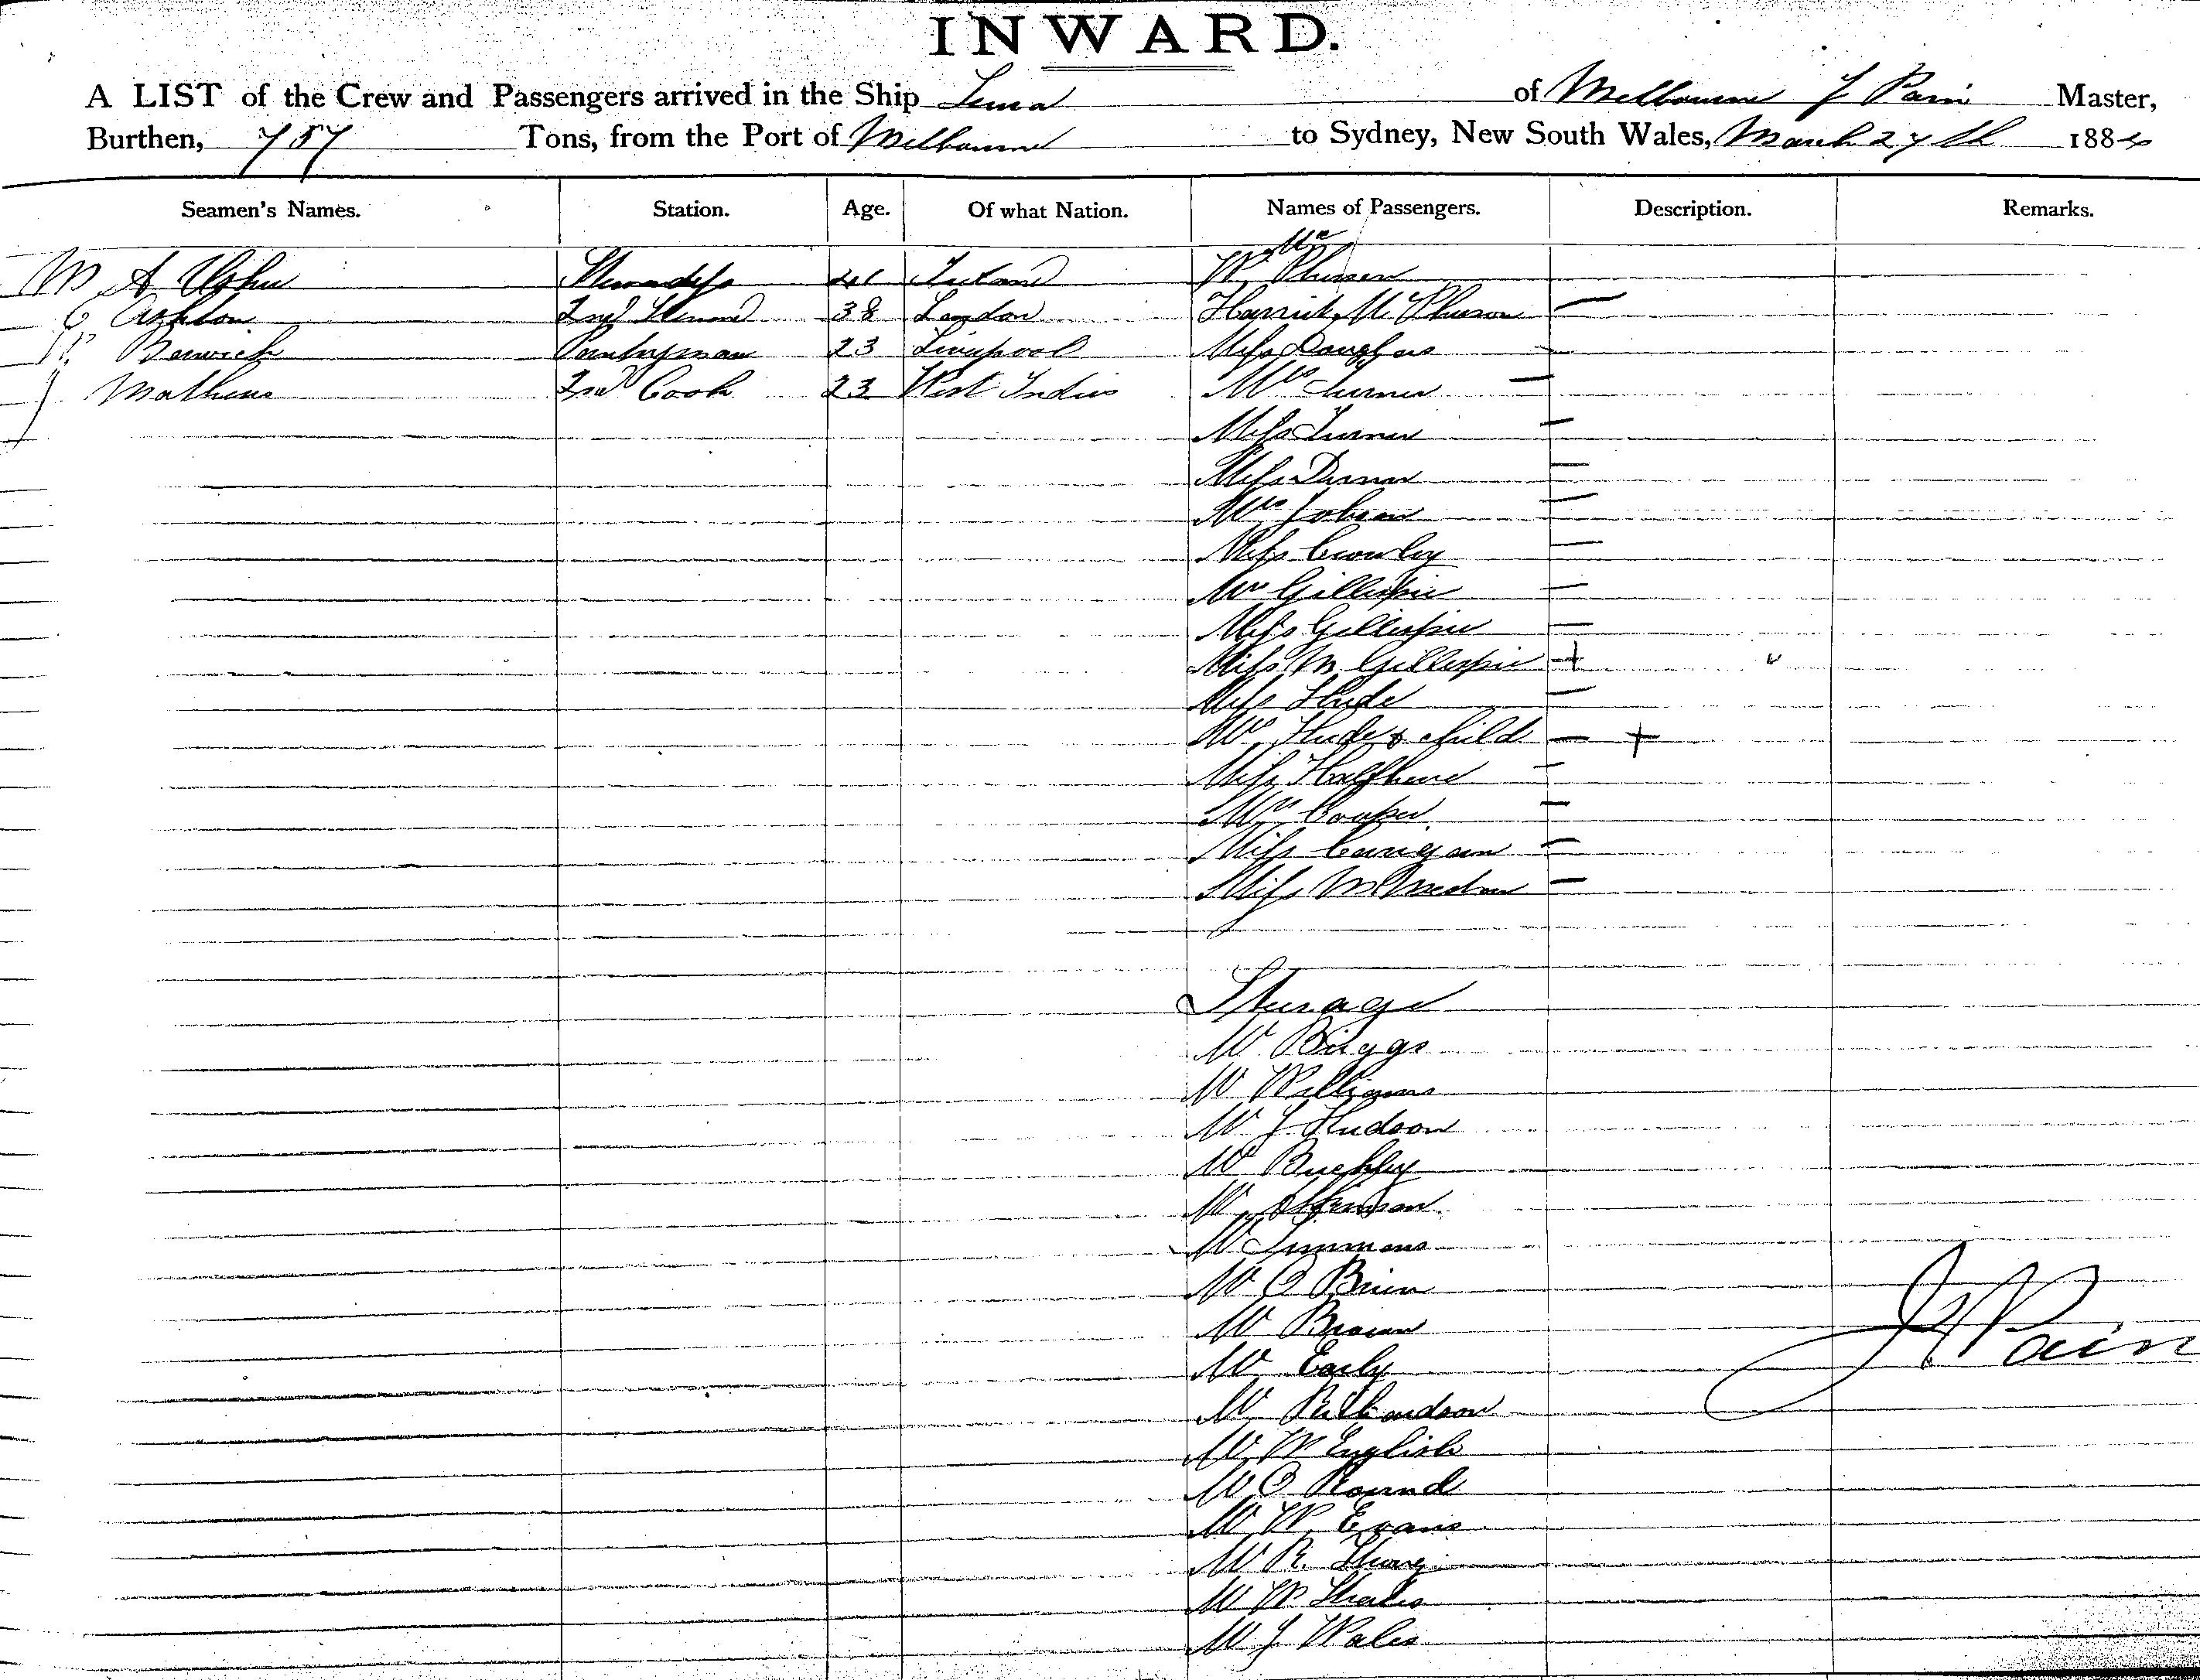 INWARD.
A LIST of the Crew and Passengers arrived in the Ship of Melbourne J Pain Master,
Burthen, 757 Tons, from the Port of Melbourne to Sydney, New South Wales, March 27th 1884
Seamen's Names. Station. Age. Of what Nation. Names of Passengers. Description. Remarks.
M A Usher Stewardess Ireland W
C Ashton 2nd Steward 38 London Harriet McPherson
Berwick Pantryman 23 Liverpool Miss Douglas
J Mathews 2nd Cook 23 West Indies Mrs Turner
Miss Turner
Miss
Mrs Jobson
Miss Crowley
Mrs Gillispie
Miss Gillispie
Miss M Gillispie
Miss Hude
Mrs Hude & child
Miss
Mrs Cooper
Miss Carigan
Miss
Steerage
Mr Briggs
Mr Williams
Mr J Hudson
Mr Buckley
Mr
Mr Timmons
Mr O Brien
Mr Brown
Mr Early
Mr Richardson
Mr W English
Mr C Round
Mr W Evans
Mr R.
Mr W
Mr J Wales
J Pain